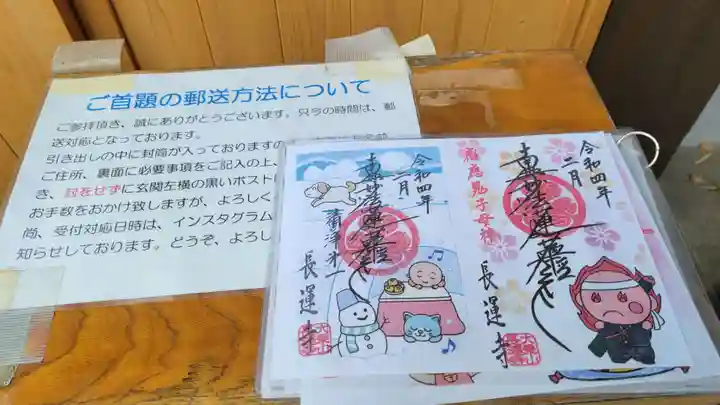 ご首題の郵送方法について
ご参拝頂き、誠にありがとうございます。只今の時間は、郵
送対応となっております。
引き出しの中に封筒が入っておりますの
ご住所、裏面に必要事項をご記入の上、
き、封をせずに玄関左横の黒いポスト
お手数をおかけ致しますが、よろしく
尚、受付対応日時は、インスタグラム
知らせしております。どうぞ、よろし
令和四年
二月
南無妙法蓮華経
長運寺
令和四年
二月
鬼子母神
南無妙法蓮華経
長運寺